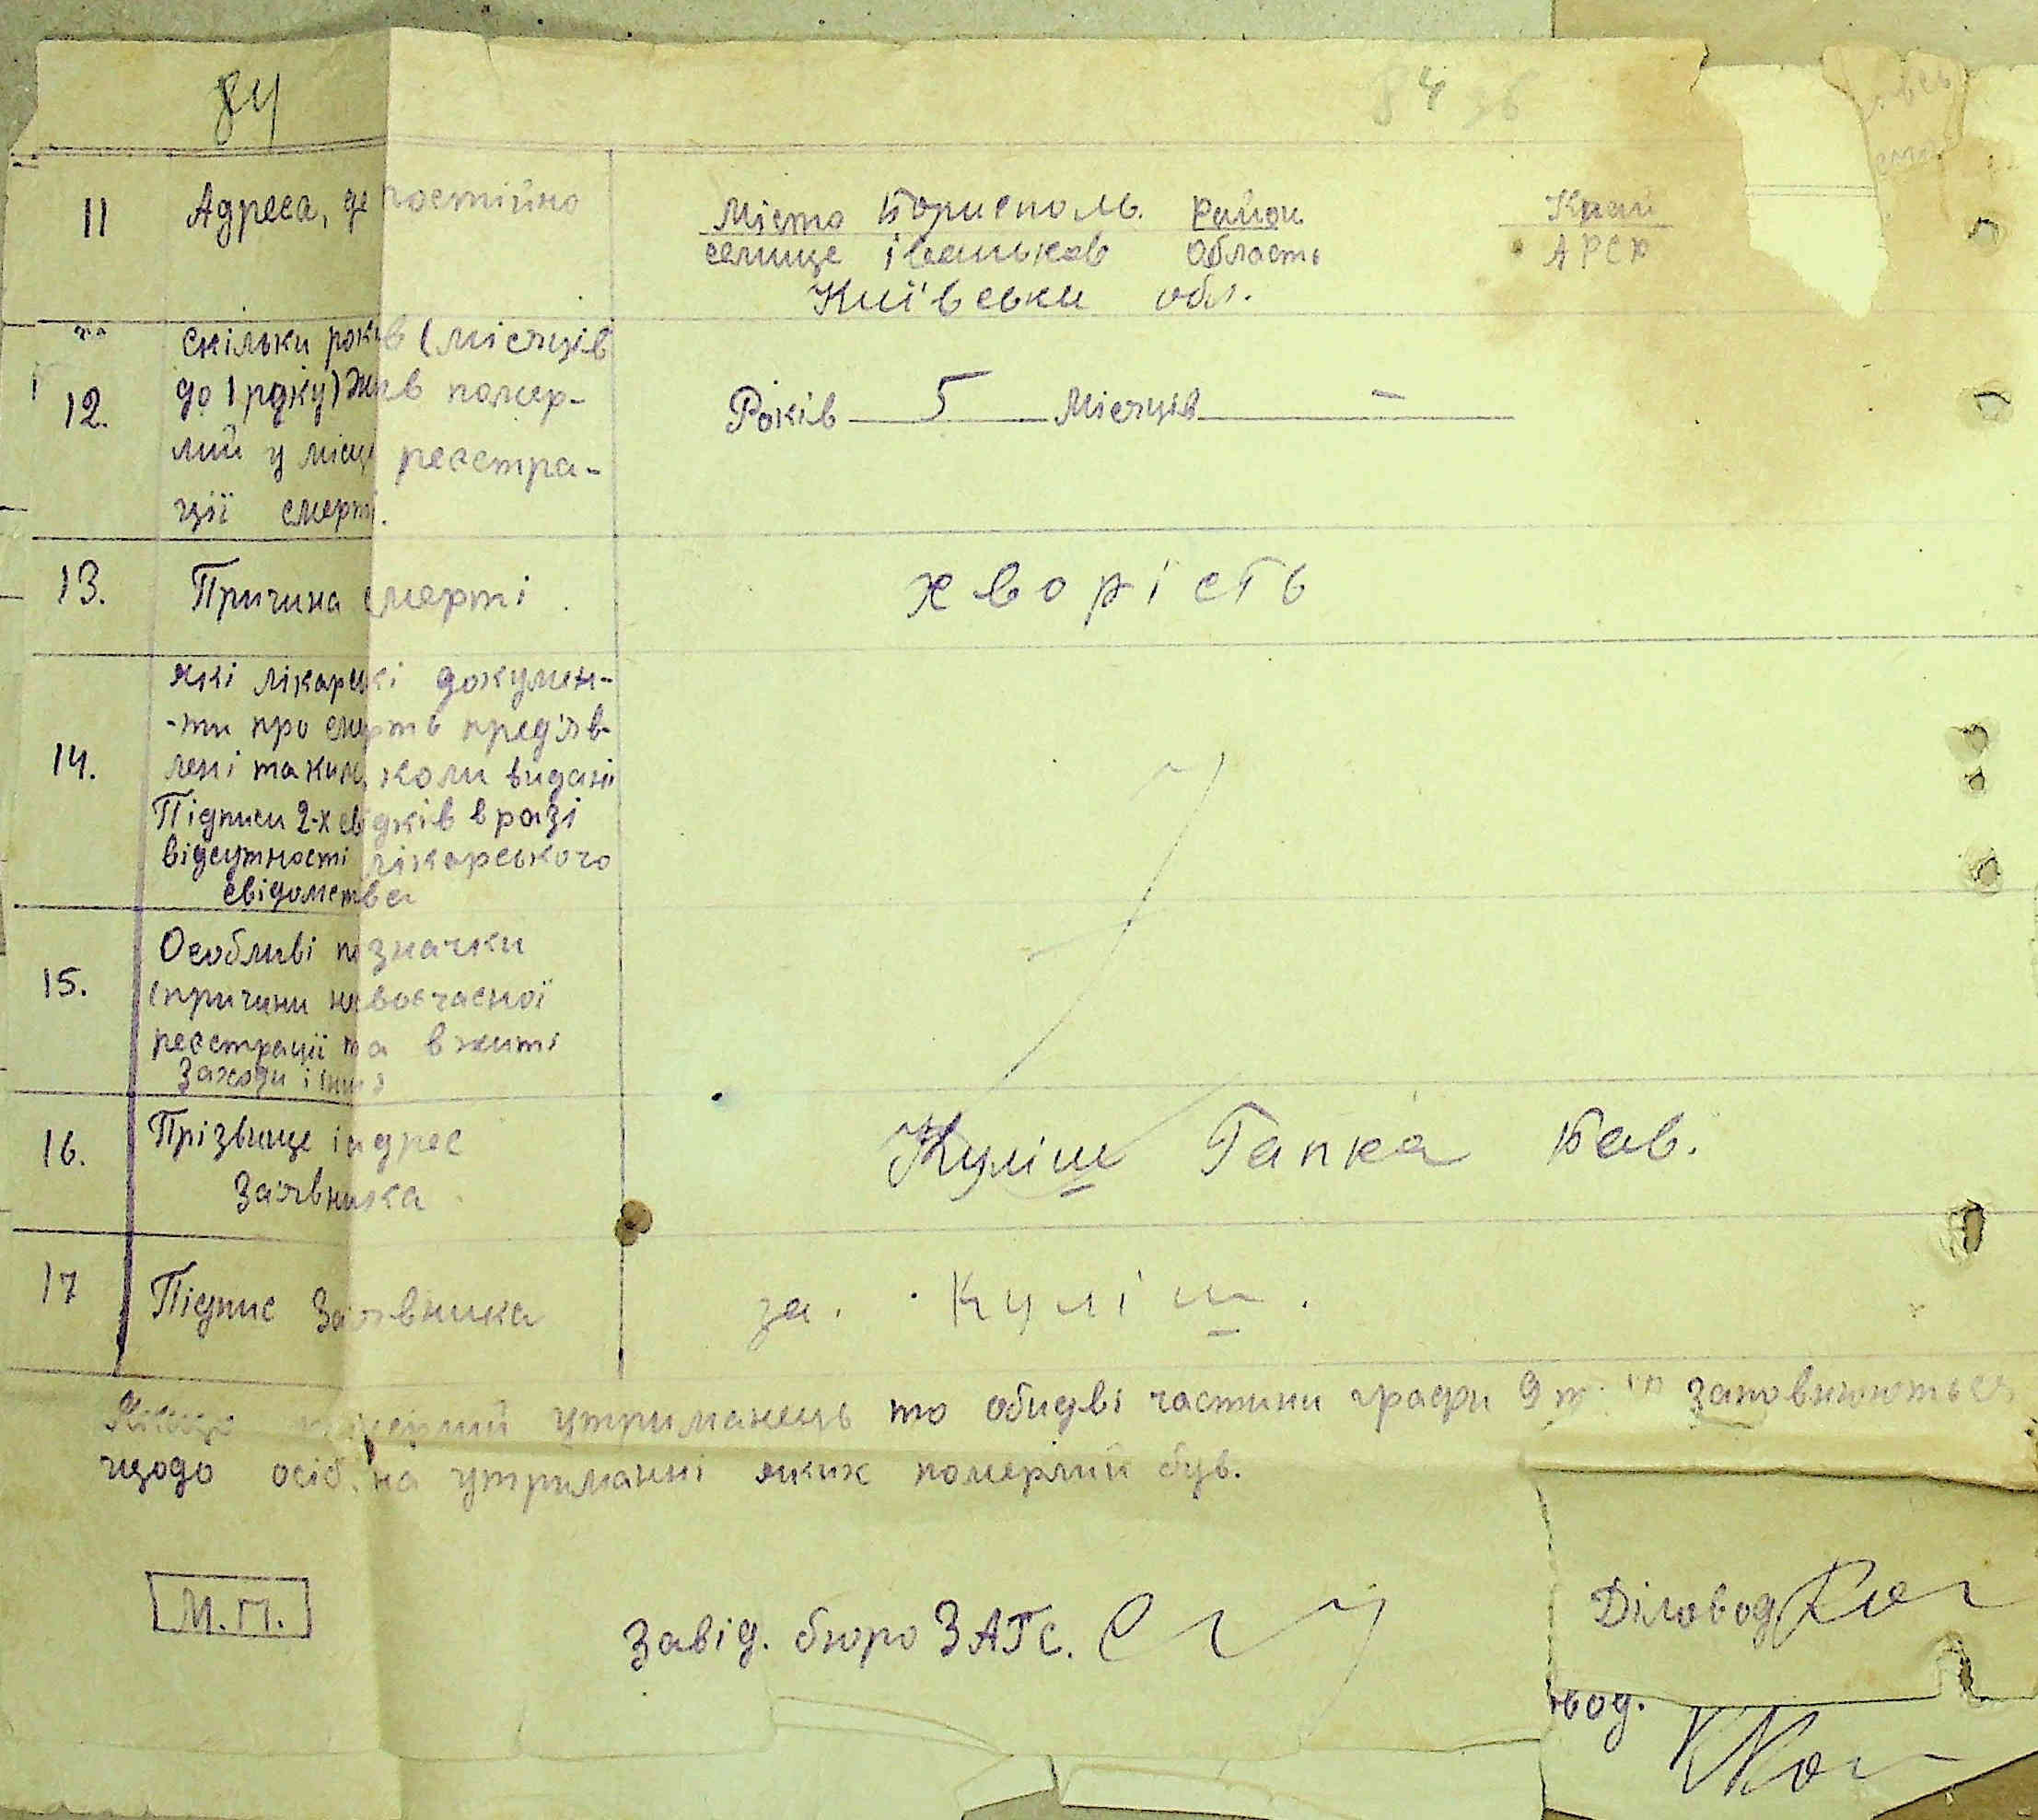 84
84 зв
11 Адреса, де постійно
Місто Бориспол. Район Край
селище іваньков Область АРСР
Київськи обл.
12. скільки років (місяців
до 1 року) жив помер-
лий у місці реєстра-
ції смерті.
Років 5 Місяців –
13. Причина смерті хворість
14. які лікарські докумен-
-ти про смерть пред'яв-
лені та ким, коли видані
Підписи 2-х свідків в разі
відсутності лікарського
свідоцтва
15. Особливі позначки
(причини невоєчасної
реєстрації та вжиті
заходи і інш
16. Прізвище і адрес
Заявника
Куліш Гапка Сав.
17 Підпис Заявника за. Куліш.
Якщо померлий утриманець то обидві частини графи 9 заповнюються
щодо осіб, на утриманні яких померлий був.
М.П.
Завід. бюро ЗАГС.
Діловод
вод.